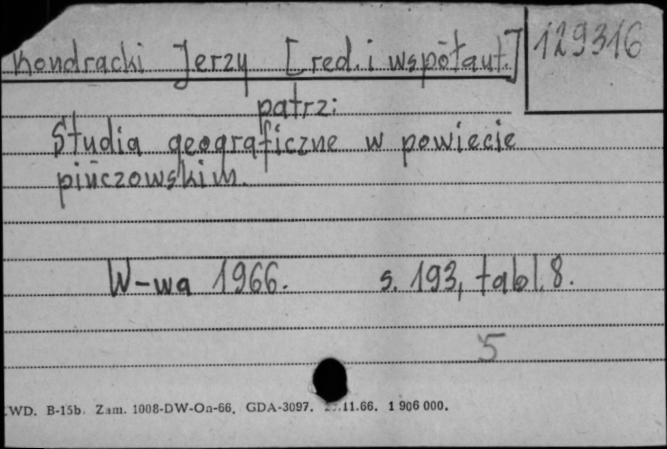 Kondracki Jerzy [red. i współaut.] 129316
patrz:
Studia geograficzne w powiecie
pińczowskim.
W-wa 1966. s. 193, tabl. 8.
5
WD. B-15b. Zam. 1008-DW-Oa-66. GDA-3097. .11.66. 1 906 000.